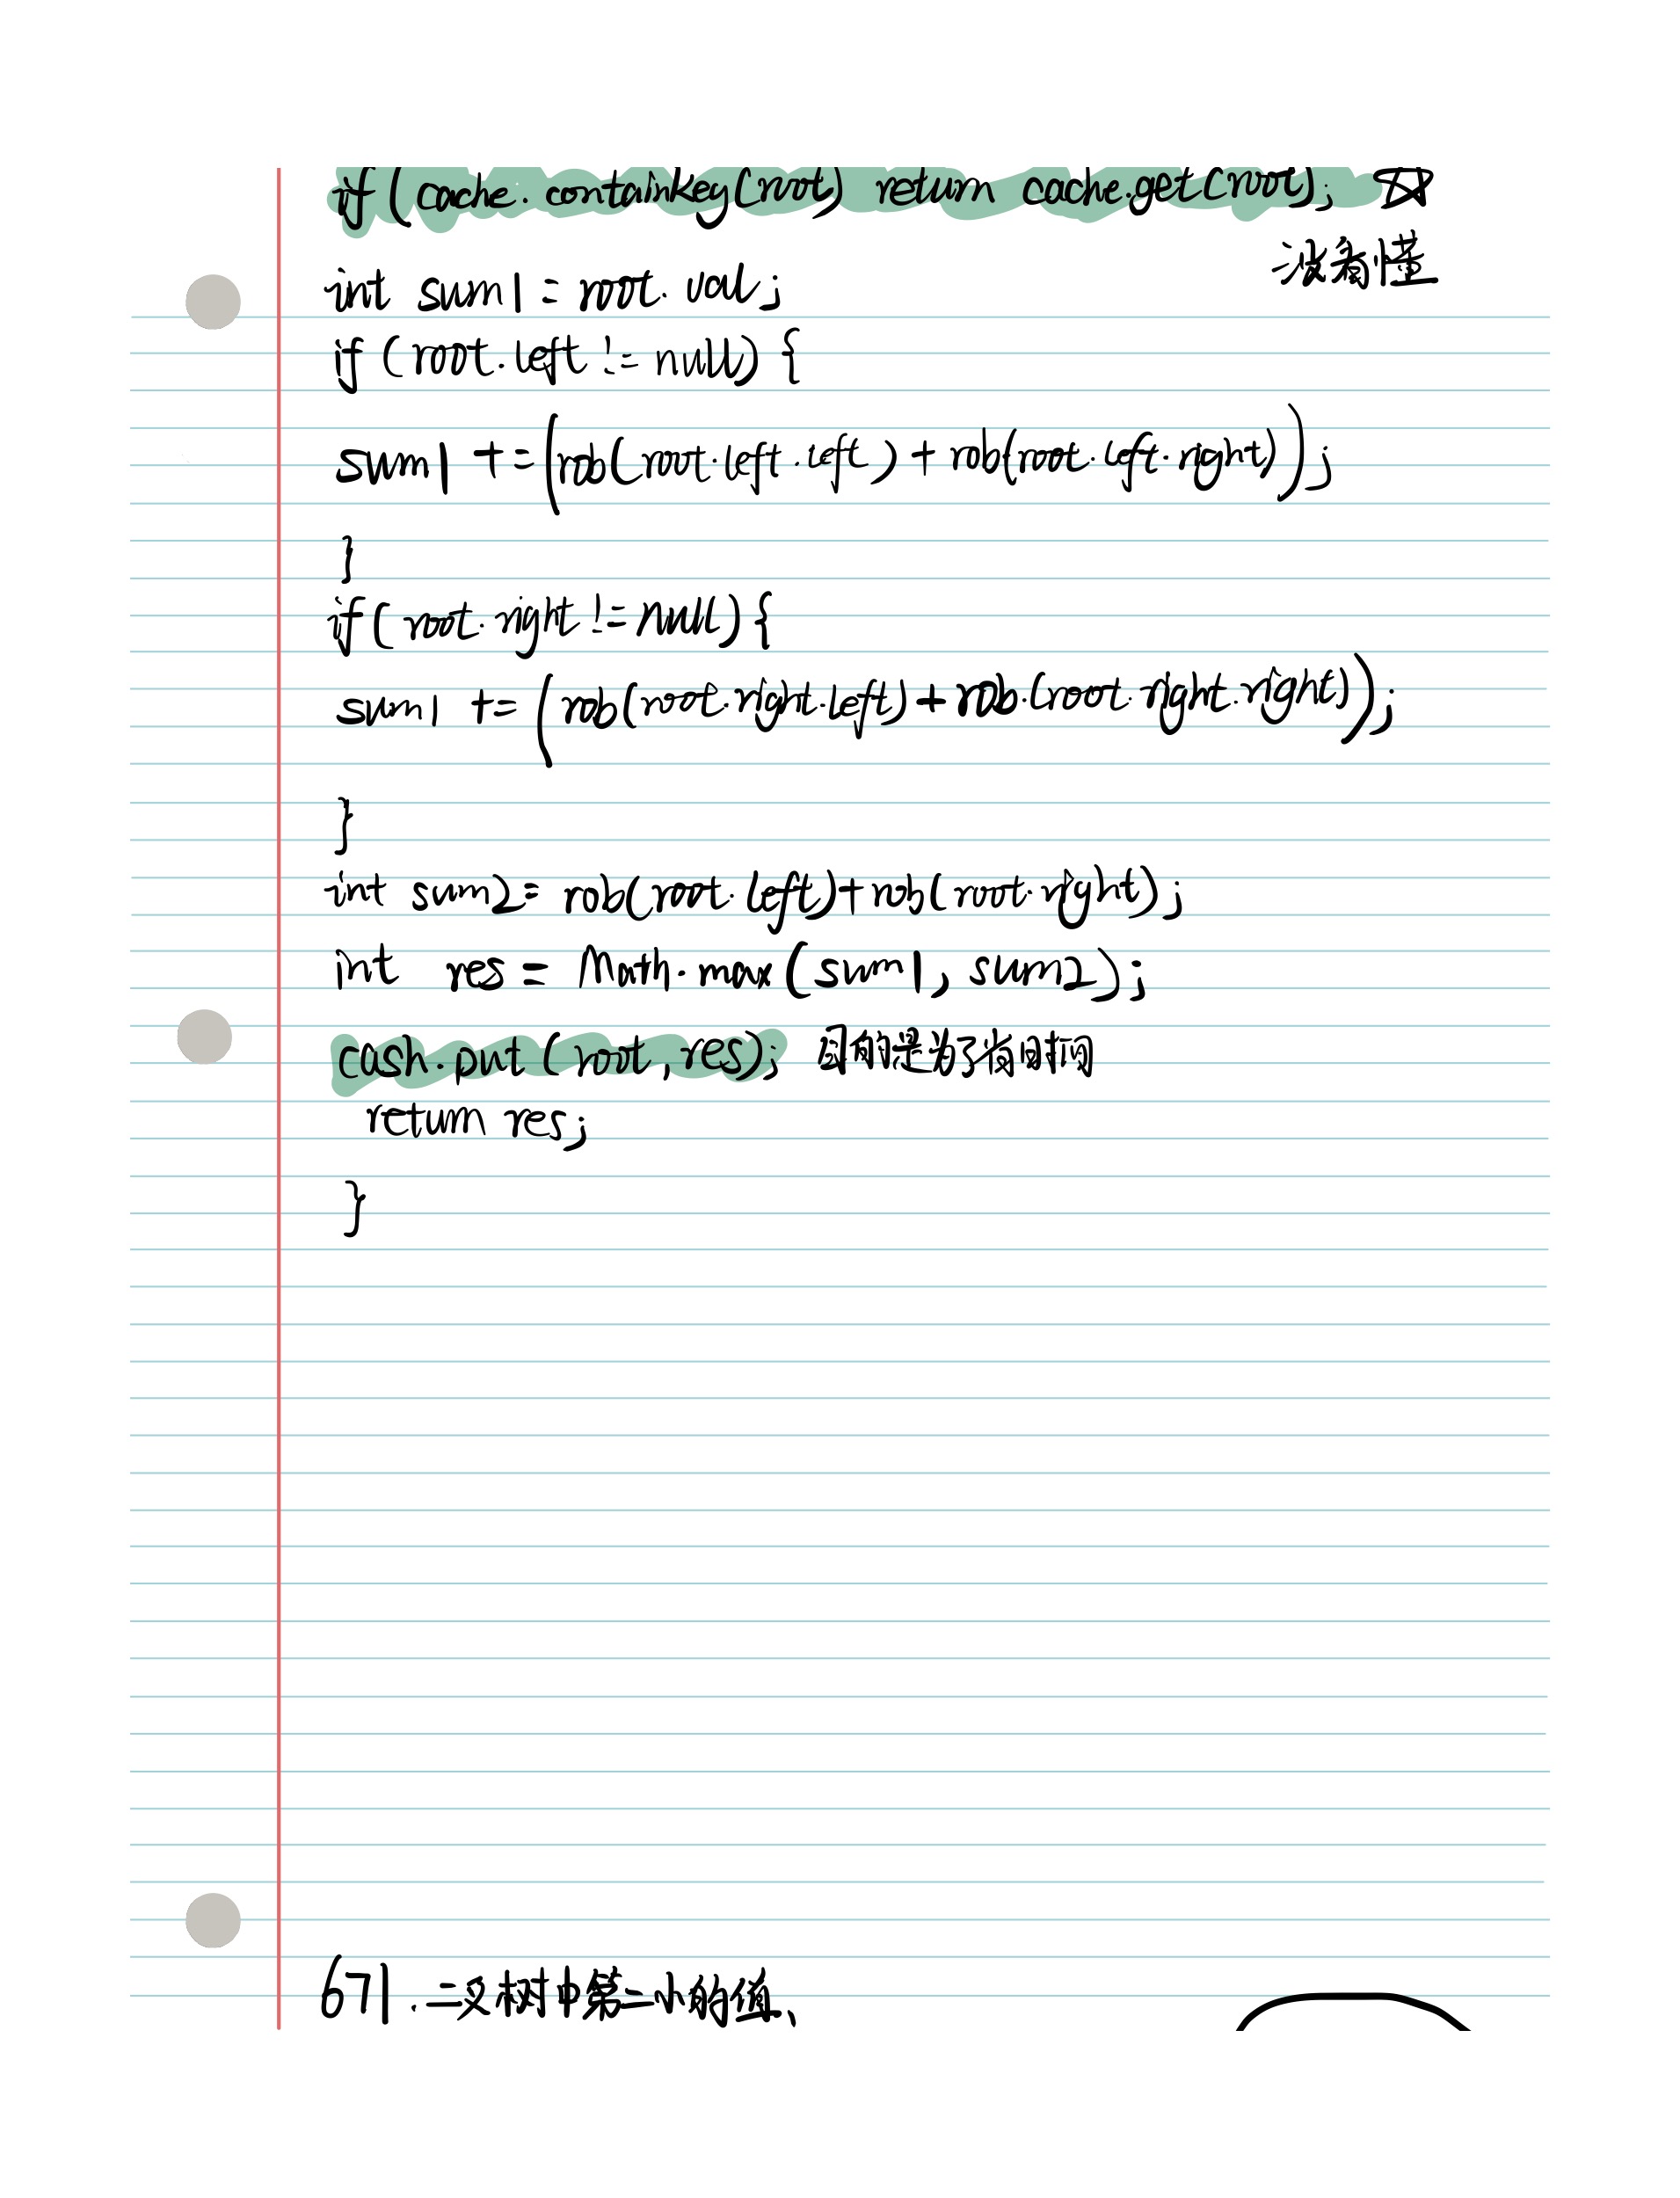 if (cache.containKey(root) return cache.get(root);
没看懂
int sum1 = root.val;
if (root.left != null) {
sum1 += (rob(root.left.left) + rob(root.left.right));
}
if (root.right != null) {
sum1 += (rob(root.right.left) + rob.(root.right.right));
}
int sum2 = rob(root.left) + rob(root.right);
int res = Math.max(sum1, sum2);
cash.put (root, res); 目的是为了省时间
return res;
}
671.二叉树中第二小的值、